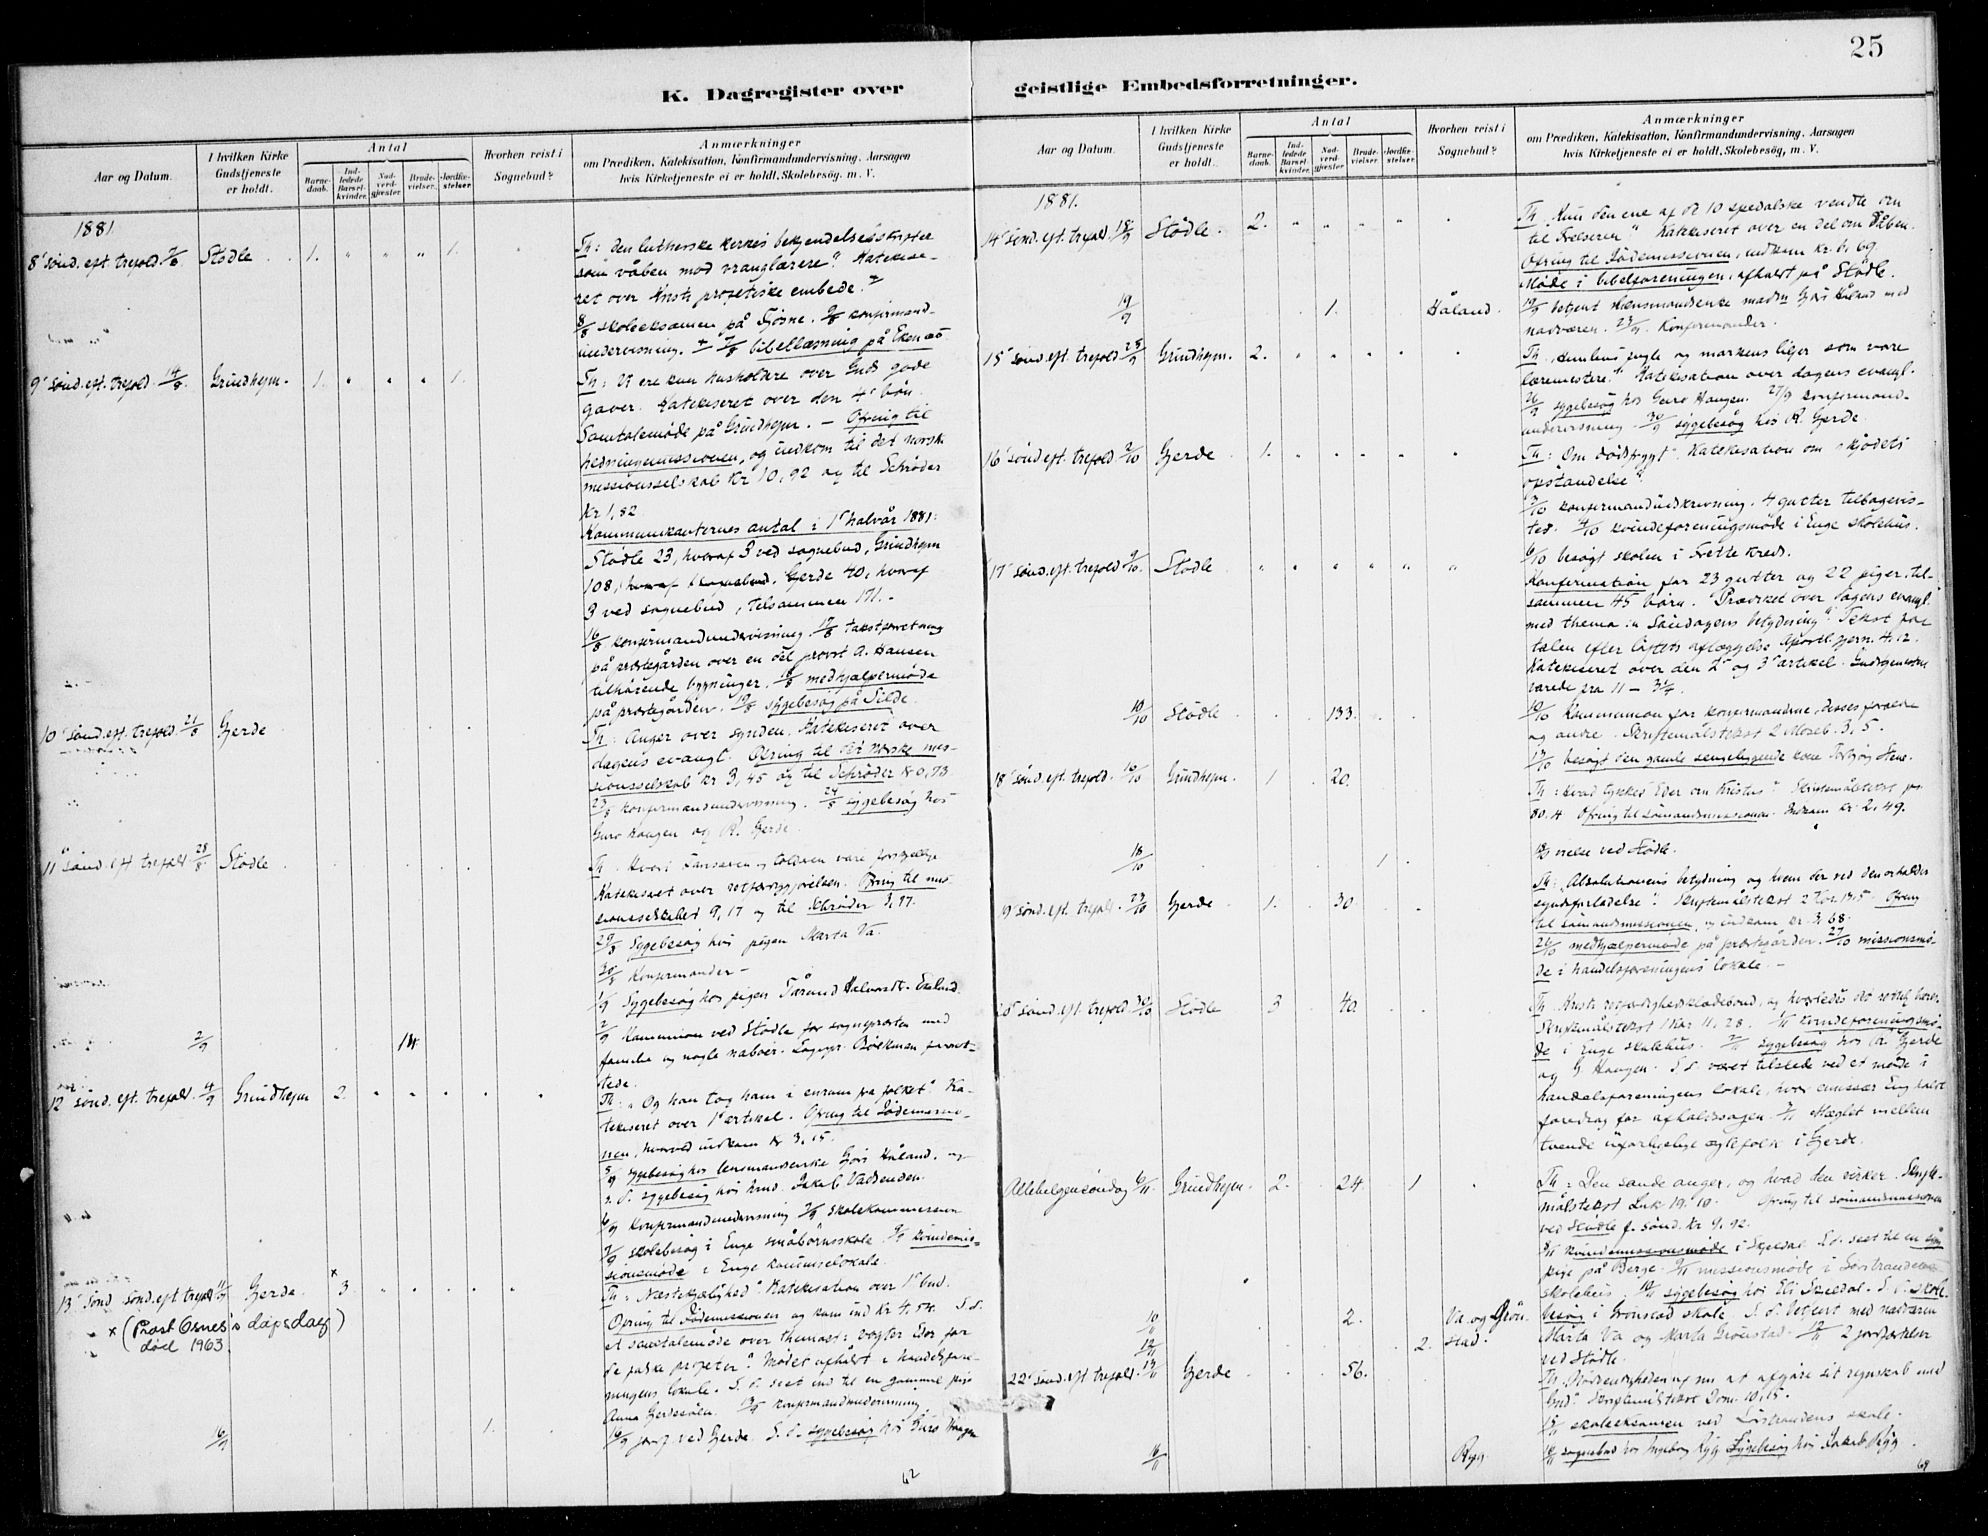 25
K. Dagregister over geistlige Embedsforretninger.
Aar og Datum.
I hvilken Kirke Gudstjeneste er holdt.
Antal
Barnedaab.
Indledede Barselkvinder.
Nadverdgjester.
Brudevielser.
Jordfæstelser.
Hvorhen reist i Sognebud?
Anmærkninger
om Prædiken, Katekisation, Konfirmandundervisning, Aarsagen
hvis Kirketjeneste ei er holdt, Skolebesøg, m. V.
1881
8' sønd. eft. trefold. 7/8 Stödle 1. " " " 1.
Th: den lutherske kirkes bekjendelsesskrifter
som våben mod vranglærere." Katekise-
ret over Kristi profetiske embede.
8/8 skoleeksamen på Fjösne. 9/8 konfirmand-
undervisning. 7/8 bibellæsning på Ekenæs
9' sønd. eft. trefold. 14/8 Grindhejm. 1. " " " 1.
Th: Vi ere kun husholdere over Guds gode
gaver. Katekiseret over den 4' bön.
Samtalemöde på Grindhejm. — Ofring til
hedningemissionen, og indkom til det norske
missionsselskab Kr 10,92 og til Schrøder
Kr 1,82
Kommunikanternes antal i 1' halvår 1881:
Stödle 23, hvoraf 3 ved sognebud, Grindhejm
108, Gjerde 40, hvoraf
3 ved sognebud, tilsammen 171.-
16/8 konfirmandundervisning. 17/8 takstforretning
på prestegården over en del provst A. Hansen
tilhörende bygninger. 18/8 medhjælpermöde
på prestegården. 19/8 sygebesög på Silde.
10' sønd. eft. trefold. 21/8 Gjerde
Th: Anger over synden. Katekiseret over
dagens evangl. Ofring til det norske mis-
sionsselskab Kr 3,45 og til Schrøder Kr 0,73.
23/8 konfirmandundervisning. 24/8 sygebesög hos
Guro Haugen og R. Gjerde.
11' sønd. eft. trefold 28/8 Stödle
Katekiseret over retfærdiggjörelsen. Ofring til mis-
sionsselskabet 9,17 og til Schrøder 3,17.
29/8 Sygebesög hos pigen Marta Va.
30/8 Konfirmander -
1/9 Sygebesög hos pigen
2/9 14.
2/9 Kommunion ved Stödle for sognepresten med
familie og nogle naboer. Sogepr. Böckman forret-
tede.
12' sønd. eft. trefold. 4/9 Grindhejm 2. " " " "
Th: "Og han tog ham i enrum fra folket." Ka-
tekiseret over 1' artikel. Ofring til Jødemissio-
nen, hvorved indkom Kr 3,15.
5/9 sygebesög hos lensmandsenke Gjöri Håland, og
s. d. sygebesög hos
6/9 Konfirmandundervisning 7/9 skolekommission
7/9 skolebesög i Enge småbörnsskole. 9/9 Kvindemis-
sionsmöde i Enge kommunelokale.
13' sønd. eft trefold 11/9 Gjerde x 3. " " " "
x (Prost Osnes's dåpsdag)
død 1963.
Th: Næstekjærlighed". Katekisation over 1' bud.
Ofring til Jödemissionen og kom ind Kr 4,54. S. d.
et samtalemöde over themaet: vogter Eder for
de falske profeter." Mödet afholdt i handelsfore-
ningens lokale. S. d. seet ind til en gammel pige
Anna Gjerdesöen. 13/9 konfirmandundervisning.
16/9 1.
16/9 jordf. ved Gjerde. S. d. sygebesög hos Guro Haugen
62
1881.
14' sønd. eft. trefold. 18/9 Stödle. 2. " " " "
Th: Kun den ene af de 10 spedalske vendte om
til Frelseren" Katekiseret over en del om Dåben.
Ofring til Jödemissionen, indkom Kr. 6,69
Möde i bibelforeningen, afholdt på Stödle.
19/9 1. Håland.
19/9 betjent lensmandsenke madm Gjöri Håland med
nadveren. 23/9. Konfirmander.
15' sønd. eft. trefold. 25/9 Grindhejm. 2. " " " "
Th: Himlens fugle og markens liljer som vore
læremestere." Katekisation over dagens evangl.
26/9 sygebesög hos Guro Haugen. 27/9 konfirmand-
undervisning. 30/9 sygebesög hos R. Gjerde.
16' sønd. eft. trefold. 2/10 Gjerde 1. " " " "
Th: Om dödsfrygt". Katekisation om "kjødets
opstandelse".
3/10 konfirmandudskrivning. 4 gutter tilbagevis-
tes. 4/10 kvindeforeningsmöde i Enge skolehus.
6/10 besögt skolen i Frette kreds.
17' sønd. eft. trefold 9/10 Stödle " " " " "
Konfirmation for 23 gutter og 22 piger, til-
sammen 45 börn. Prædiket over dagens evangl.
med thema: "Söndagens betydning". Tekst for
talen efter löftets aflæggelse Apostl. gjern. 4.12.
Katekiseret over den 2' og 3' artikel. Gudstjenesten
varede fra 11 — 3 1/4.
10/10 Stödle 133.
10/10 Kommunion for konfirmanderne, deres forældre
og andre. Skriftemålstekst 2 Moseb. 3,5.
besögt den gamle sengeliggende kone
18' sønd. eft. trefold. 16/10 Grindhejm. 1 20.
Th: Hvad tykkes Eder om Kristus? Skriftemålstekst ps
80.4. Ofring til sömandsmissionen. Indkom Kr 2,49.
18/10 1
18/10 vielse ved Stödle.
19' sønd. eft. trefold. 23/10 Gjerde 1. 30
Th: Absolutionens betydning og hvem der ved den erholder
syndsforladelse". Skriftemålstekst 2 Kor 13.5. Ofring
til sömandsmissionen, og indkom kr. 3,68.
26/10 medhjælpermöde på prestegården. 27/10 missionsmö-
de i handelsforeningens lokale. -
20' sønd. eft. trefold 30/10 Stödle 3 40.
Skriftemålstekst 1 Kor 11. 28. 1/11 Kvindeforeningsmö-
de i Enge skolehus. 2/11 sygebesög hos R. Gjerde
og G. Haugen. S. d. været tilstede ved et möde i
handelsforeningens lokale, hvor emissær Eng holdt
foredrag for afholdssagen. 3/11 Mæglet mellem
tvende uforligelige ægtefolk i Gjerde.
Allehelgensöndag 6/11. Grindhejm. 2. 24 1
Th: Den sande anger, og hvad den virker. Skrifte-
målstekst Luk 19. 10. Ofring til sömandsmissionen
ved Stödle f. sönd. Kr 9,92.
8/11 kvindemissionsmöde i Skjeldal. S. d. seet til en syg
pige på Berge. 9/11 missionsmöde i Sörstrandens
skolehus. 10/11 sygebesög hos Eli Skjeldal. S. d. skole-
besög i Grönstad skole. S. d. betjent med nadveren
Marta Va og Marta Grönstad. 12/11 2 jordfæstelser
ved Stödle.
10/11 2. Va og Grön-
stad.
12/11 2.
22' sønd. eft trefold. 13/11 Gjerde 56.
Th: Nödvendigheden af at afgjöre sit regnskab med
Gud." Skriftemålstekst Dom. 10,15.
15/11 skoleeksamen ved Sörstrandens skole.
16/11 Ryg
16/11 sognebud hos Ingeborg Ryg Sygebesög hos Jakob Ryg.
69